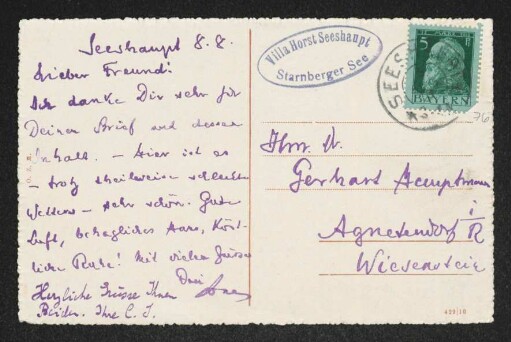 Seeshaupt 8.8.
Lieber Freund!
Ich danke Dir sehr für
Deinen Brief und dessen
Inhalt. – Hier ist es
– trotz theilweise schlechten
Wetters – sehr schön. Gute
Luft, behagliches Haus, Köst-
liche Ruhe! Mit vielen Grüssen
Dein
Herzliche Grüsse Ihnen
Beiden. Ihre C. S.
Villa Horst Seeshaupt
Starnberger See
SEESH
5 Pf
BAYERN
76
Hrn. Dr.
Gerhart Hauptmann
Agnetendorf i/R
Wiesenstein
429/10